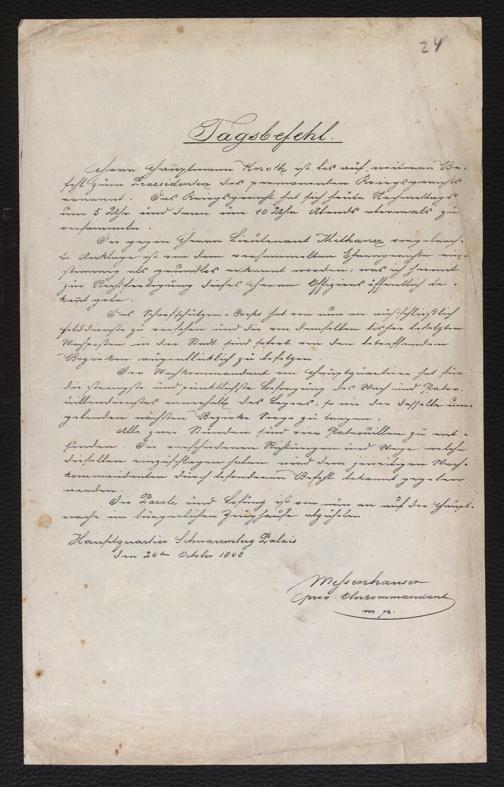 24
Tagsbefehl.
Herrn Hauptmann Knoth ist bis auf weiteren Be-
fehl zum Praesidenten des permanenten Kriegsgerichts
ernannt. Das Kriegsgericht hat sich heute Nachmittags
um 5 Uhr und dann um 10 Uhr Abends abermals zu
versammeln.
Die gegen Herrn Lieutenant
Anklage ist von dem versammelten Ehrengerichte ein-
stimmig als grundlos erkannt worden, was ich hiermit
zur Rechtfertigung dieses Herrn Offiziers öffentlich be-
kannt gebe.
Das Scharfschützen-Corps hat von nun an ausschließlich
Felddienste zu versehen und die von demselben bisher besetzten
Wachposten in der Stadt sind sofort von den betreffenden
Bezirken augenblicklich zu besetzen.
Der Wachkommandant im Hauptquartier hat für
die strengste und pünktlichste Besorgung des Wach und Patro-
uillendienstes innerhalb des Lagers, so wie der dasselbe um-
gebenden nächsten Bezirke Sorge zu tragen.
Alle zwei Stunden sind vier Patrouillen zu ent-
senden. Die verschiedenen Richtungen und Wege welche
dieselben einzuschlagen haben wird dem jeweiligen Wach-
kommandanten durch besonderen Befehl bekannt gegeben
werden.
Die Parole und Losung ist von nun an auf der Haupt-
wache im bürgerlichen Zeughause abzuholen
Hauptquartier Schwarzenberg Palais
den 24ten October 1848
Messenhauser
prov. Obercommandant
m. p.